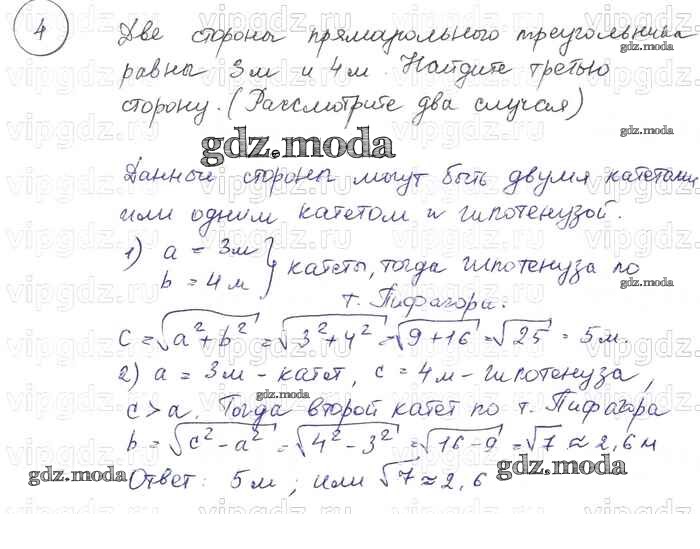 4 Две стороны прямоугольного треугольника
равны 3м и 4м. Найдите третью
сторону. (Рассмотрите два случая)
gdz.moda
Данные стороны могут быть двумя катетами
или одним катетом и гипотенузой.
1) a = 3м
b = 4м } катеты, тогда гипотенуза по
т. Пифагора:
c = √a² + b² = √3² + 4² = √9 + 16 = √25 = 5м.
2) a = 3м - катет, c = 4м - гипотенуза,
c > a. Тогда второй катет по т. Пифагора
b = √c² - a² = √4² - 3² = √16 - 9 = √7 ≈ 2,6м
Ответ: 5м; или √7 ≈ 2,6
gdz.moda
gdz.moda